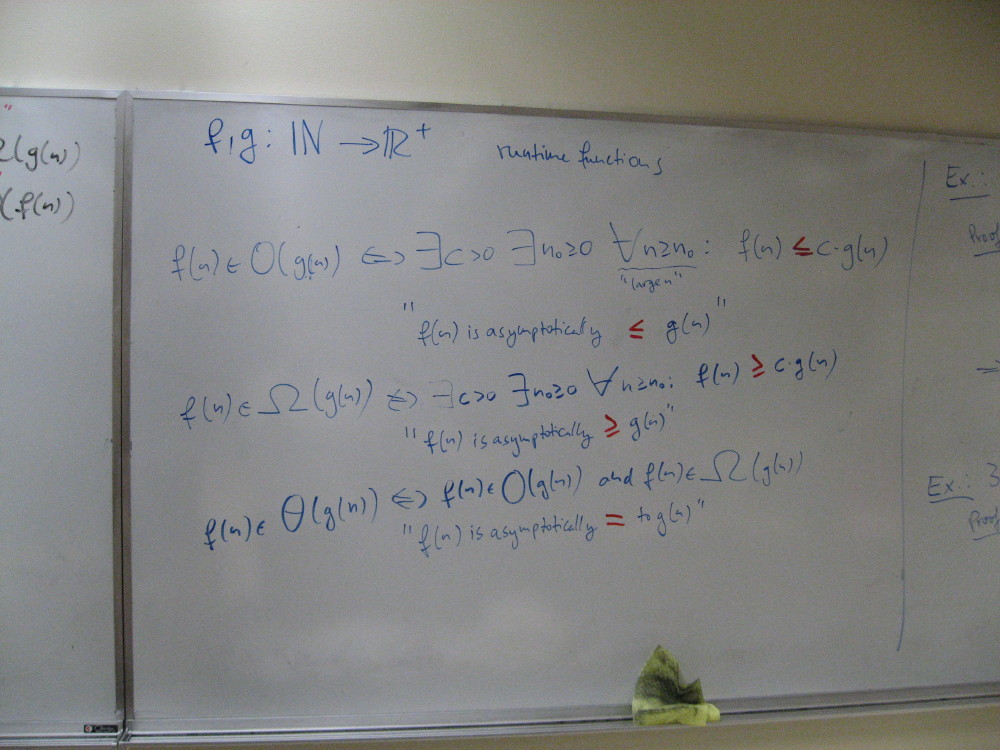 "
Ω(g(n))
(f(n))
f,g: ℕ → ℝ⁺ runtime functions
f(n) ∈ O(g(n)) ⇔ ∃c>0 ∃n₀≥0 ∀n≥n₀: f(n) ≤ c·g(n)
"large n"
"f(n) is asymptotically ≤ g(n)"
f(n) ∈ Ω(g(n)) ⇔ ∃c>0 ∃n₀≥0 ∀n≥n₀: f(n) ≥ c·g(n)
"f(n) is asymptotically ≥ g(n)"
f(n) ∈ Θ(g(n)) ⇔ f(n) ∈ O(g(n)) and f(n) ∈ Ω(g(n))
"f(n) is asymptotically = to g(n)"
Ex.:
Proof
⇒
Ex.: 3
Proof